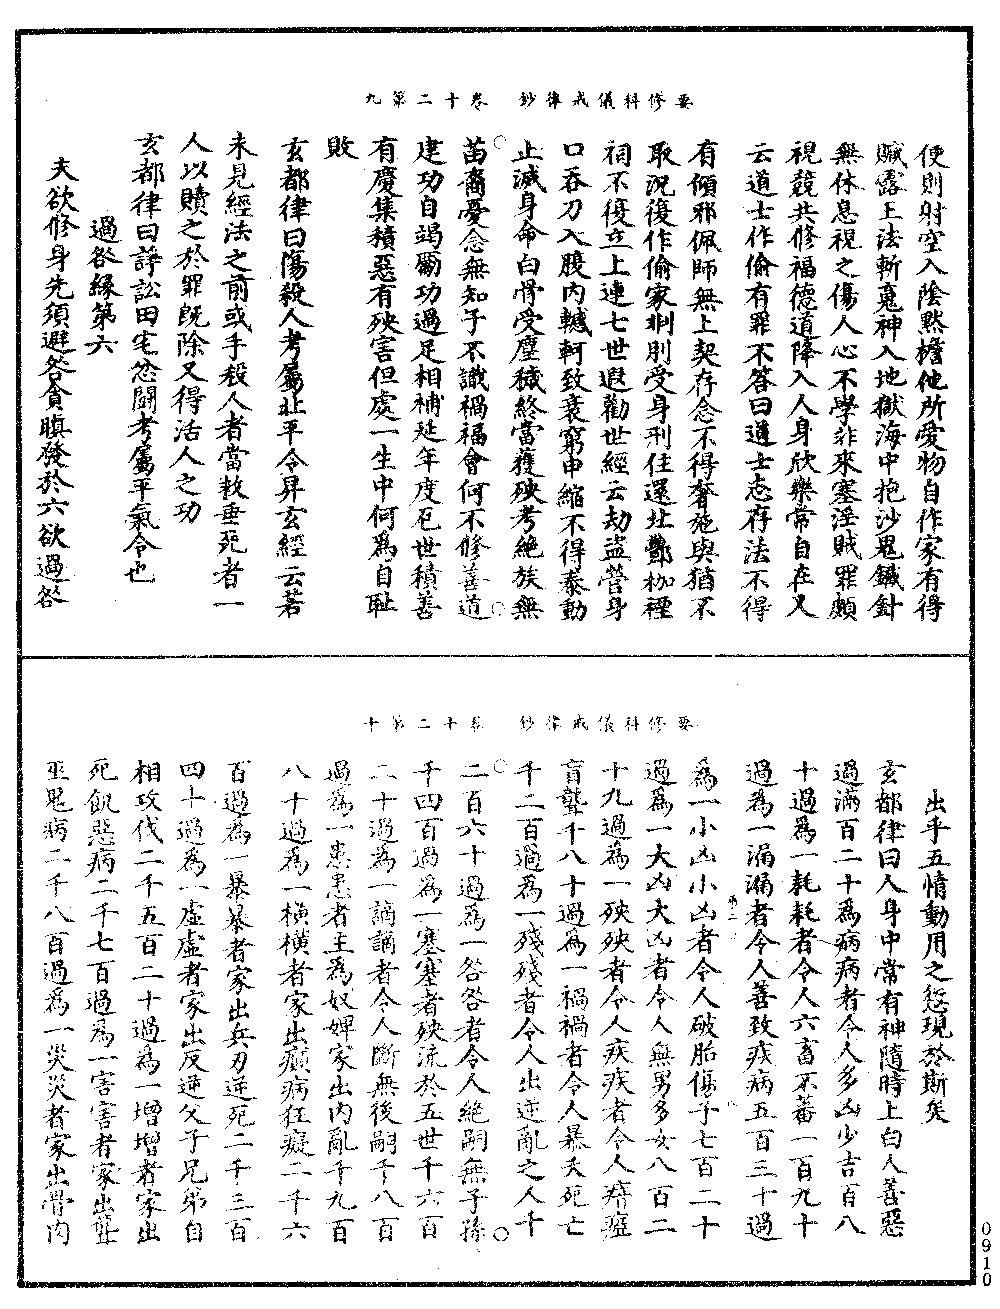 要修科儀戒律鈔　卷十二第九
便則射空入陰黙檐他所愛物自作家有得
贓露王法斬䰟神入地獄海中抱沙鬼鐵針
無休息視之傷人心不學非來塞淫賊罪頗
視競共修福德道降入人身欣樂常自在又
云道士作偷有罪不答曰道士志存法不得
有傾邪佩師無上契存念不得奢施與猶不
取況復作偷家刑則受身刑住還北酆枷裡
祠不復立上連七世遐勸世經云劫盜營身
口吞刀入腹内轗軻致衰窮申縮不得泰動
止減身命白骨受塵穢終當獲殃考絶族無
苗裔憂念無知子不識禍福會何不修善道
建功自竭勵功過足相補延年度厄世積善
有慶集積惡有殃害但處一生中何爲自耻
敗
玄都律曰傷殺人考屬北平令昇玄經云若
未見經法之前或手殺人者當救垂死者一
人以贖之於罪既除又得活人之功
玄都律曰諍訟田宅忿鬪考屬平氣令也
過咎縁第六
夫欲修身先須避咎貪瞋發於六欲過咎
要修科儀戒律鈔　卷十二第十
出乎五情動用之愆現於斯矣
玄都律曰人身中常有神隨時上白人善惡
過滿百二十爲病病者令人多凶少吉百八
十過爲一耗耗者令人六畜不蕃一百九十
過爲一漏漏者令人善致疾病五百三十過
爲一小凶小凶者令人破胎傷子七百二十
過爲一大凶大凶者令人無男多女八百二
十九過爲一殃殃者令人疾疾者令人瘖瘂
盲聾千八十過爲一禍禍者令人暴夭死亡
千二百過爲一殘殘者令人出逆亂之人千
二百六十過爲一咎咎者令人絶嗣無子孫
千四百過爲一塞塞者殃流於五世千六百
二十過爲一謫謫者令人斷無後嗣千八百
過爲一患患者主爲奴婢家出内亂千九百
八十過爲一横横者家出癲病狂癡二千六
百過爲一暴暴者家出兵刃逆死二千三百
四十過爲一虛虛者家出反逆父子兄弟自
相攻伐二千五百二十過爲一增增者家出
死飢惡病二千七百過爲一害害者家出
巫鬼病二千八百過爲一災災者家出骨肉
0910